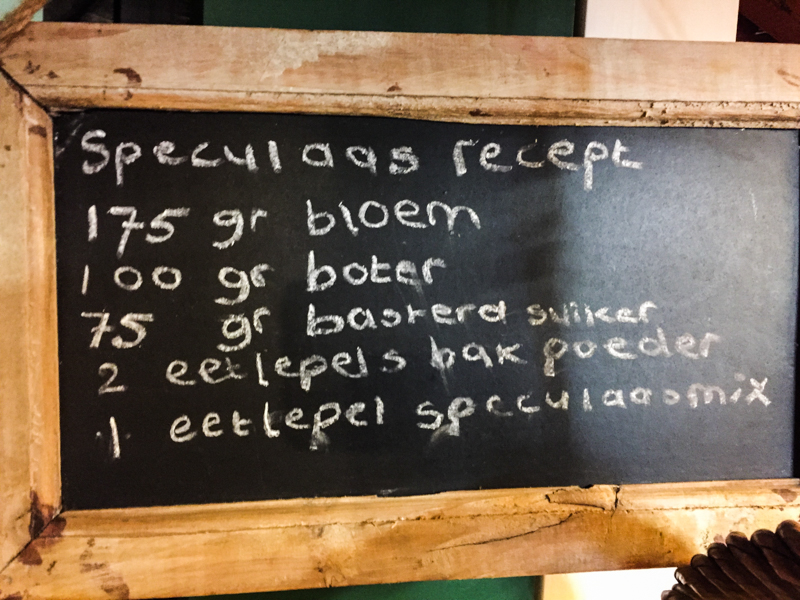 Speculaas recept
175 gr bloem
100 gr boter
75 gr basterd suiker
2 eetlepels bak poeder
1 eetlepel speculaasmix